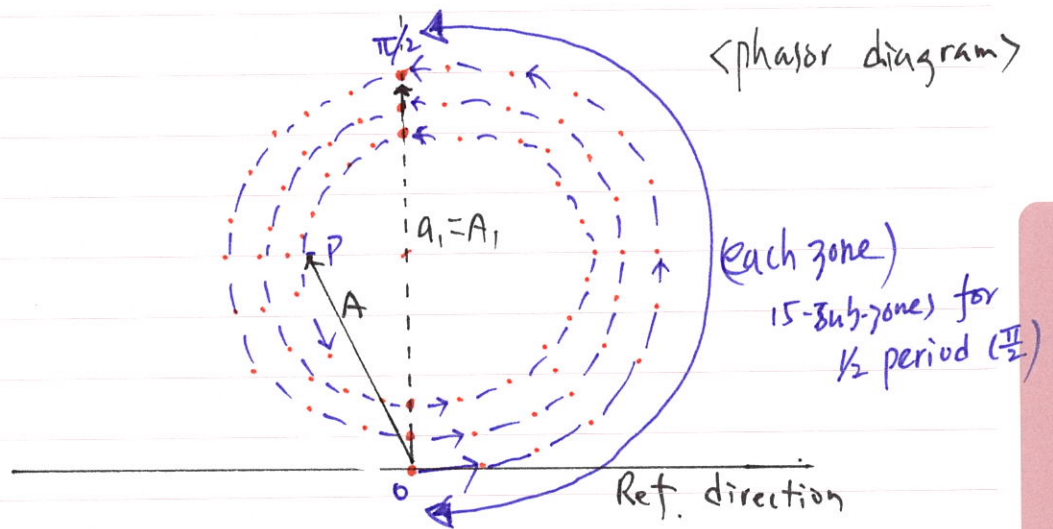 π/2
<phasor diagram>
a₁=A₁
P
A
(each zone)
15-sub-zones for
1/2 period (π/2)
O
Ref. direction